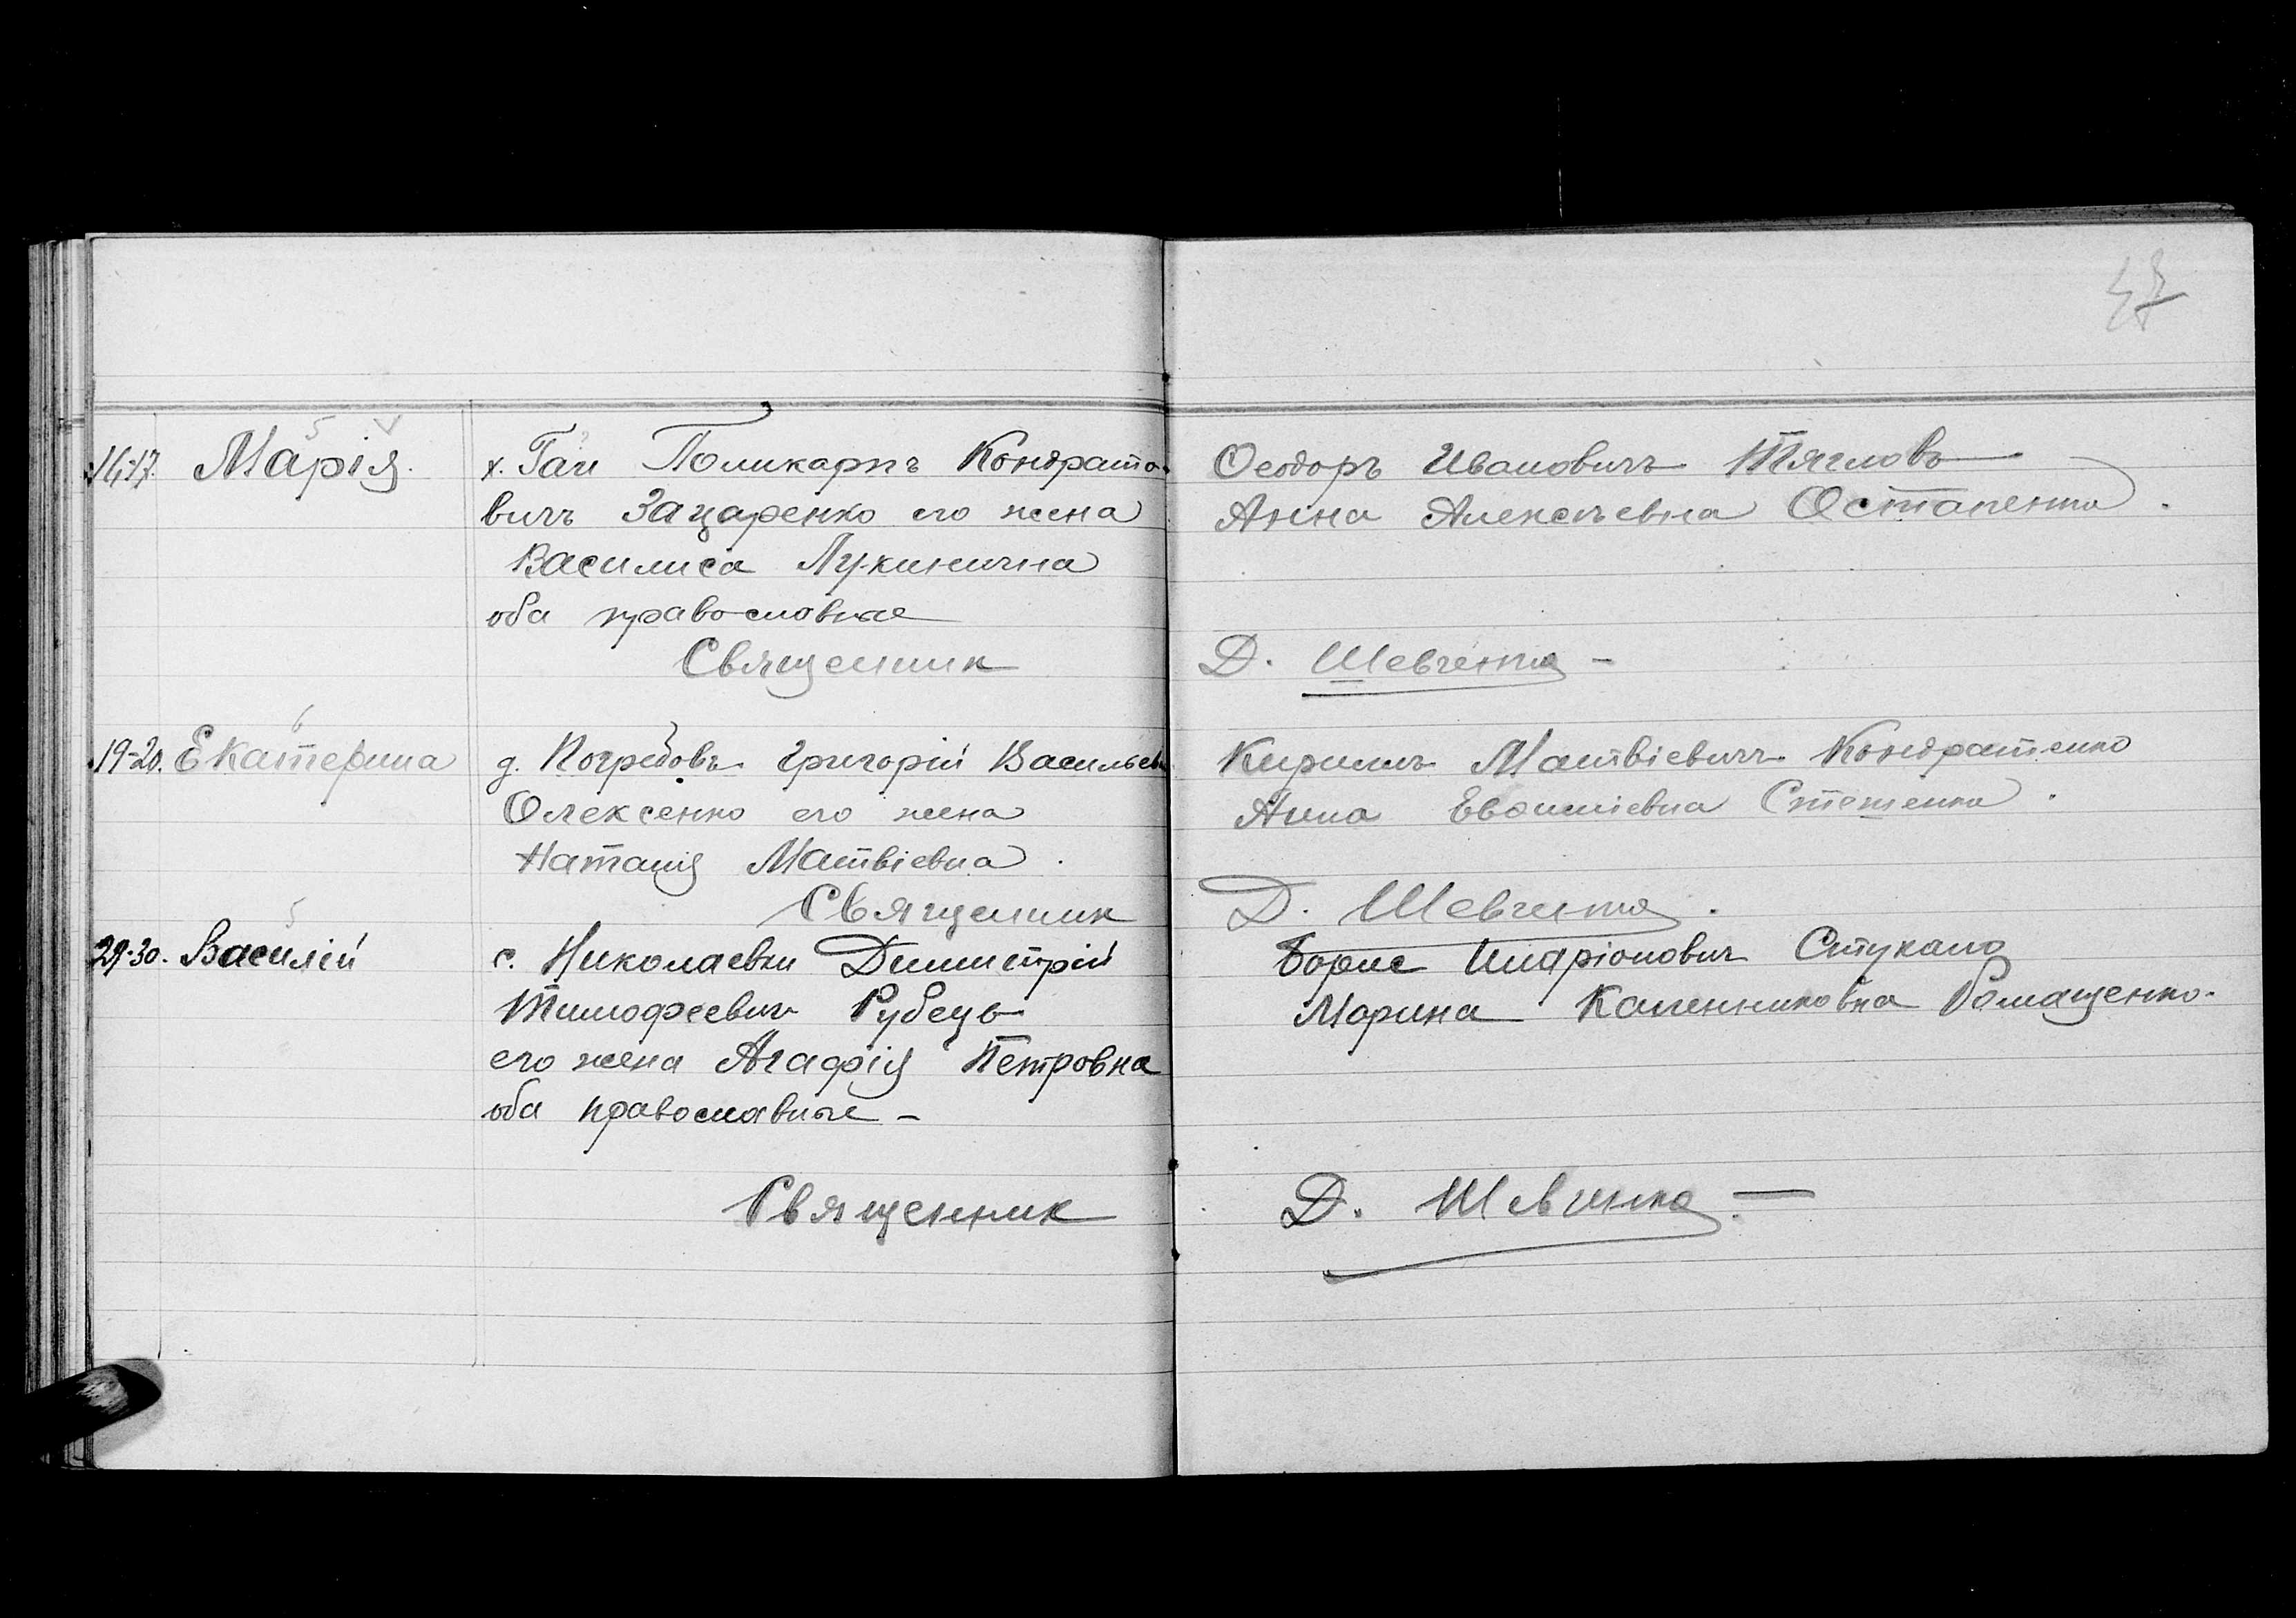 47
16-17. Марія.
х. Гаи Поликарпъ Кондрато-
вичъ Зацаренко его жена
Василиса Лукинична
оба православные
Священник
Ѳеодоръ Ивановичъ Тягловъ
Анна Алексѣевна Остапенко.
Д. Шевченко -
19-20. Екатерина
д. Погребовъ Григорій Васильев
Олексенко его жена
Наталія Матвіевна.
Священник
Кирилъ Матвіевичъ Кондратенко
Анна Евфиміевна Стешенко.
Д. Шевченко.
29-30. Василій
с. Николаевки Димитрій
Тимофеевич Рубецъ
его жена Агафія Петровна
оба православные -
Священник
Борис Иларіонович Стукало
Марина Калениковна Ромащенко.
Д. Шевченко. -